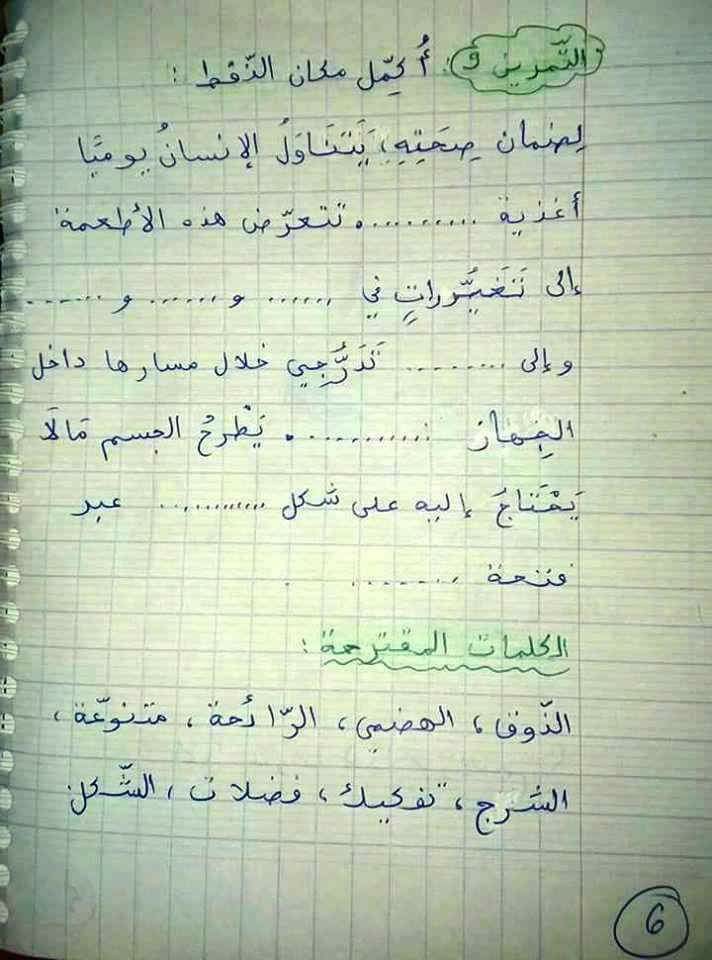 التّمرين 9: أُكمِّل مكان النّقط:
لِضمان صِحَتِهِ، يَتَنَاوَلُ الإنسانُ يوميًّا
أغذية .......... تتعرّض هذه الأطعمة
إلى تَغَيُّراتٍ في ...... و ...... و ......
وإلى ........ تَدَرُّجِي خلال مسارها داخل
الجِهاز ........... . يَطْرحُ الجسم مَالَا
يَحْتاجُ إليه على شكل ........... عبر
فتحة ........
الكلمات المقترحة:
الذّوق، الهضمي، الرّائحة، متنوّعة،
الشّرج، تفكيك، فضلات، الشّكل
6